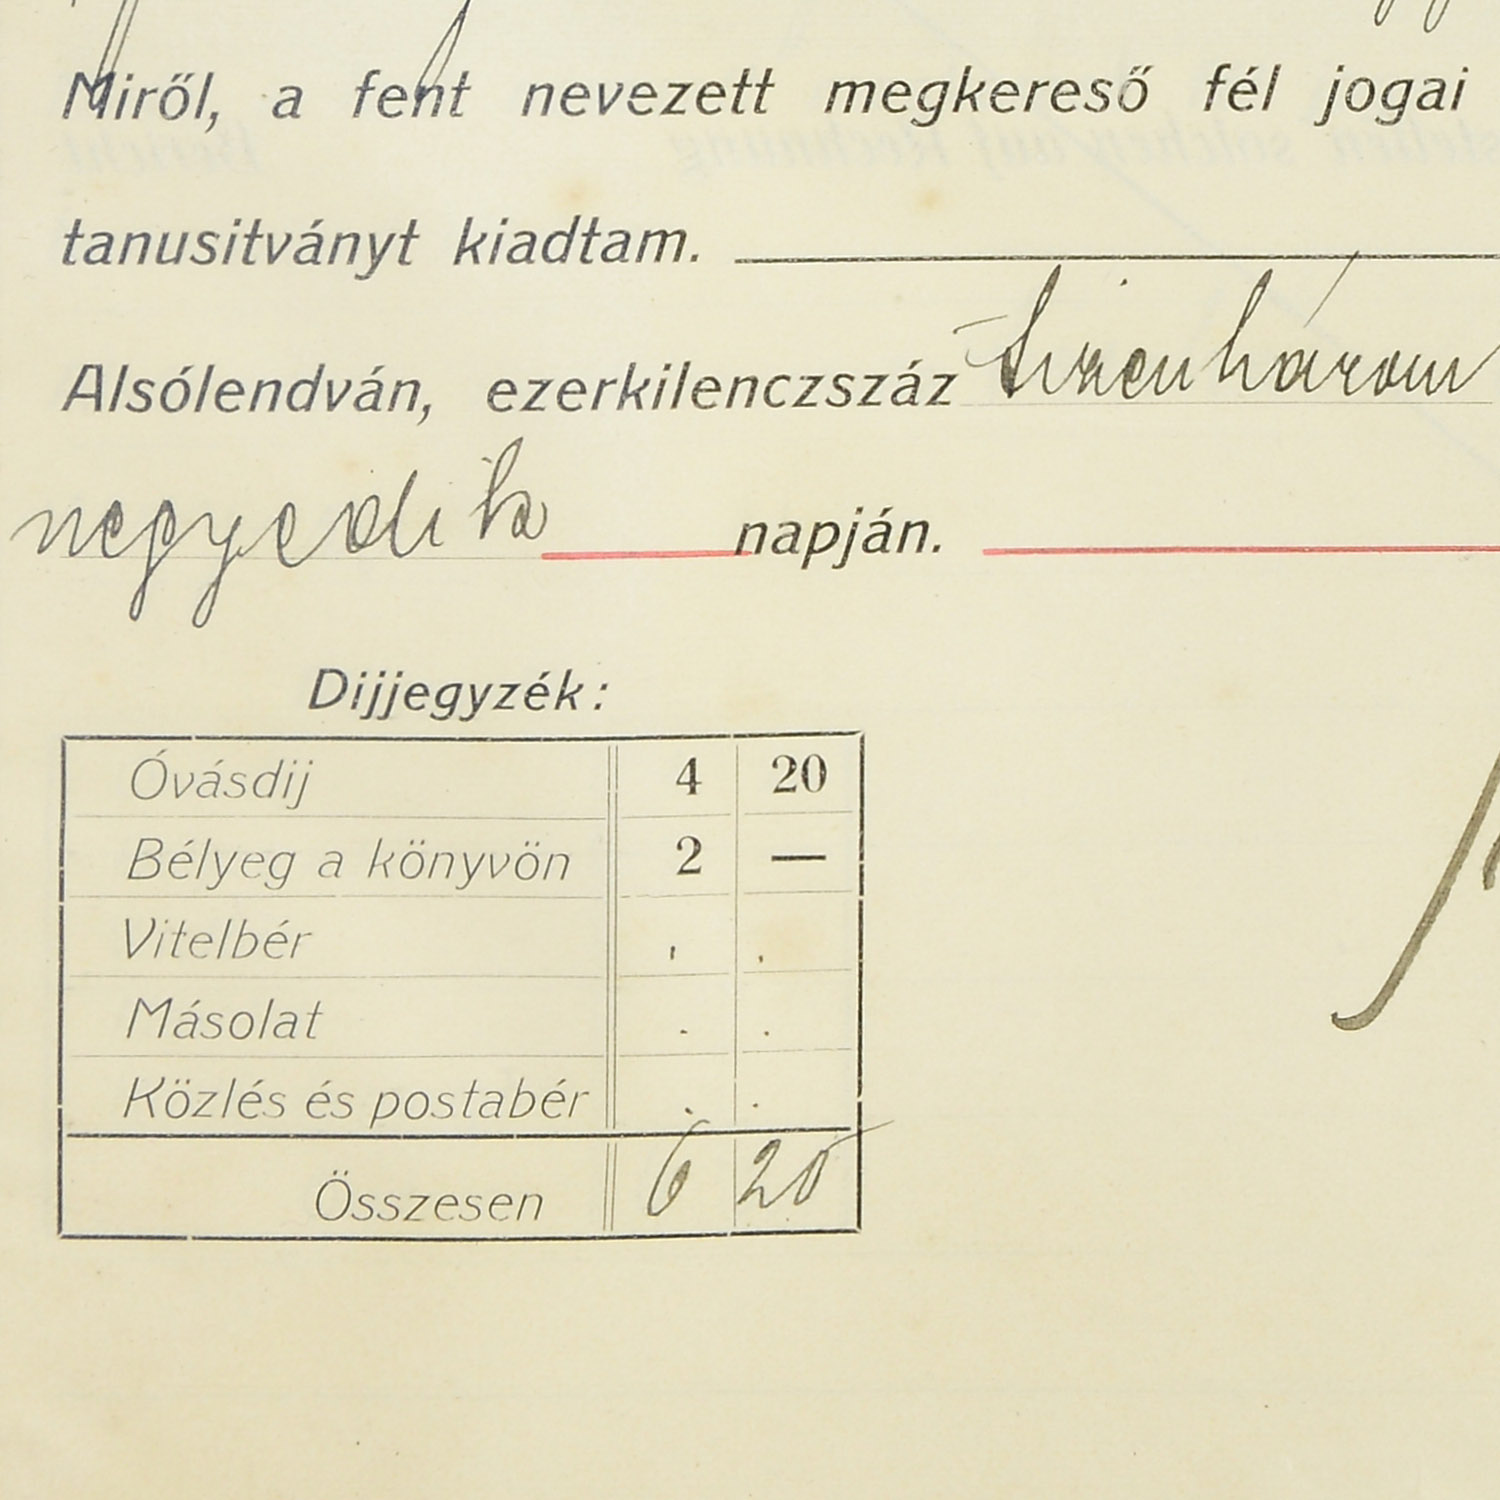 Miről, a fent nevezett megkereső fél jogai
tanusitványt kiadtam.
Alsólendván, ezerkilenczszáz tizenhárom
negyedik napján.
Dijjegyzék:
Óvásdij 4 20
Bélyeg a könyvön 2 —
Vitelbér . .
Másolat . .
Közlés és postabér . .
Összesen 6 20